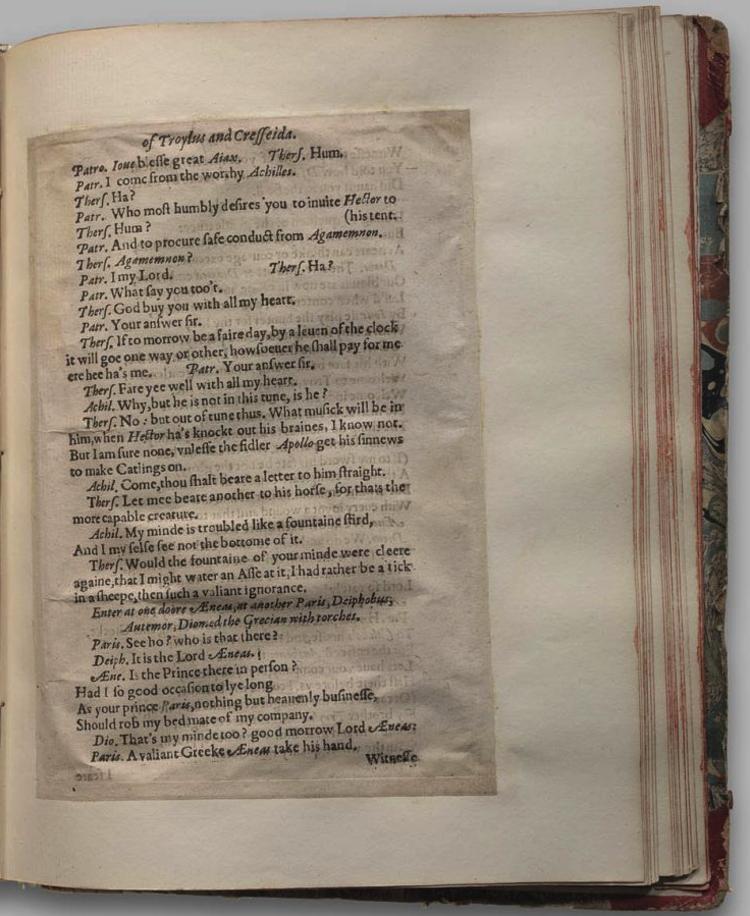 of Troylus and Cresseida.
Patro. Ioue blesse great Aiax. Thers. Hum.
Patr. I come from the worthy Achilles.
Thers. Ha?
Patr. Who most humbly desires you to inuite Hector to
Thers. Hum? (his tent.
Patr. And to procure safe conduct from Agamemnon.
Thers. Agamemnon?
Patr. I my Lord. Thers. Ha?
Patr. What say you too't.
Thers. God buy you with all my heart.
Patr. Your answer sir.
Thers. If to morrow be a faire day, by a leuen of the clock
it will goe one way or other, howsoeuer he shall pay for me
ere hee ha's me. Patr. Your answer sir.
Thers. Fare yee well with all my heart.
Achil. Why, but he is not in this tune, is he?
Thers. No: but out of tune thus. What musick will be in
him, when Hector ha's knockt out his braines, I know not.
But I am sure none, vnlesse the fidler Apollo get his sinnews
to make Catlings on.
Achil. Come, thou shalt beare a letter to him straight.
Thers. Let mee beare another to his horse, for thats the
more capable creature.
Achil. My minde is troubled like a fountaine stird,
And I my selfe see not the bottome of it.
Thers. Would the fountaine of your minde were cleere
againe, that I might water an Asse at it, I had rather be a tick
in a sheepe, then such a valiant ignorance.
Enter at one doore Æneas, at another Paris, Deiphobus,
Autemor, Diomed the Grecian with torches.
Paris. See ho? who is that there?
Deiph. It is the Lord Æneas.
Æne. Is the Prince there in person?
Had I so good occasion to lye long
As your prince Paris, nothing but heauenly businesse,
Should rob my bed mate of my company.
Dio. That's my minde too? good morrow Lord Æneas:
Paris. A valiant Greeke Æneas take his hand,
Witnesse